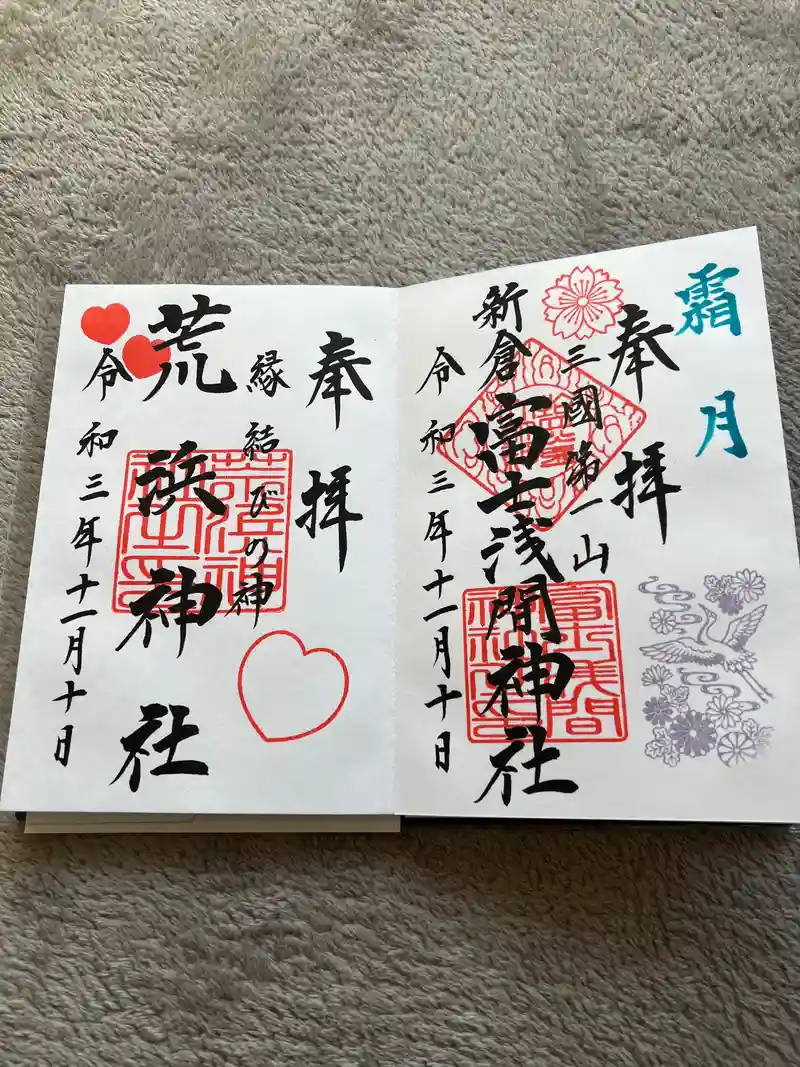 霜月
奉拝
三國第一山
新倉富士浅間神社
令和三年十一月十日
奉拝
縁結びの神
荒浜神社
令和三年十一月十日